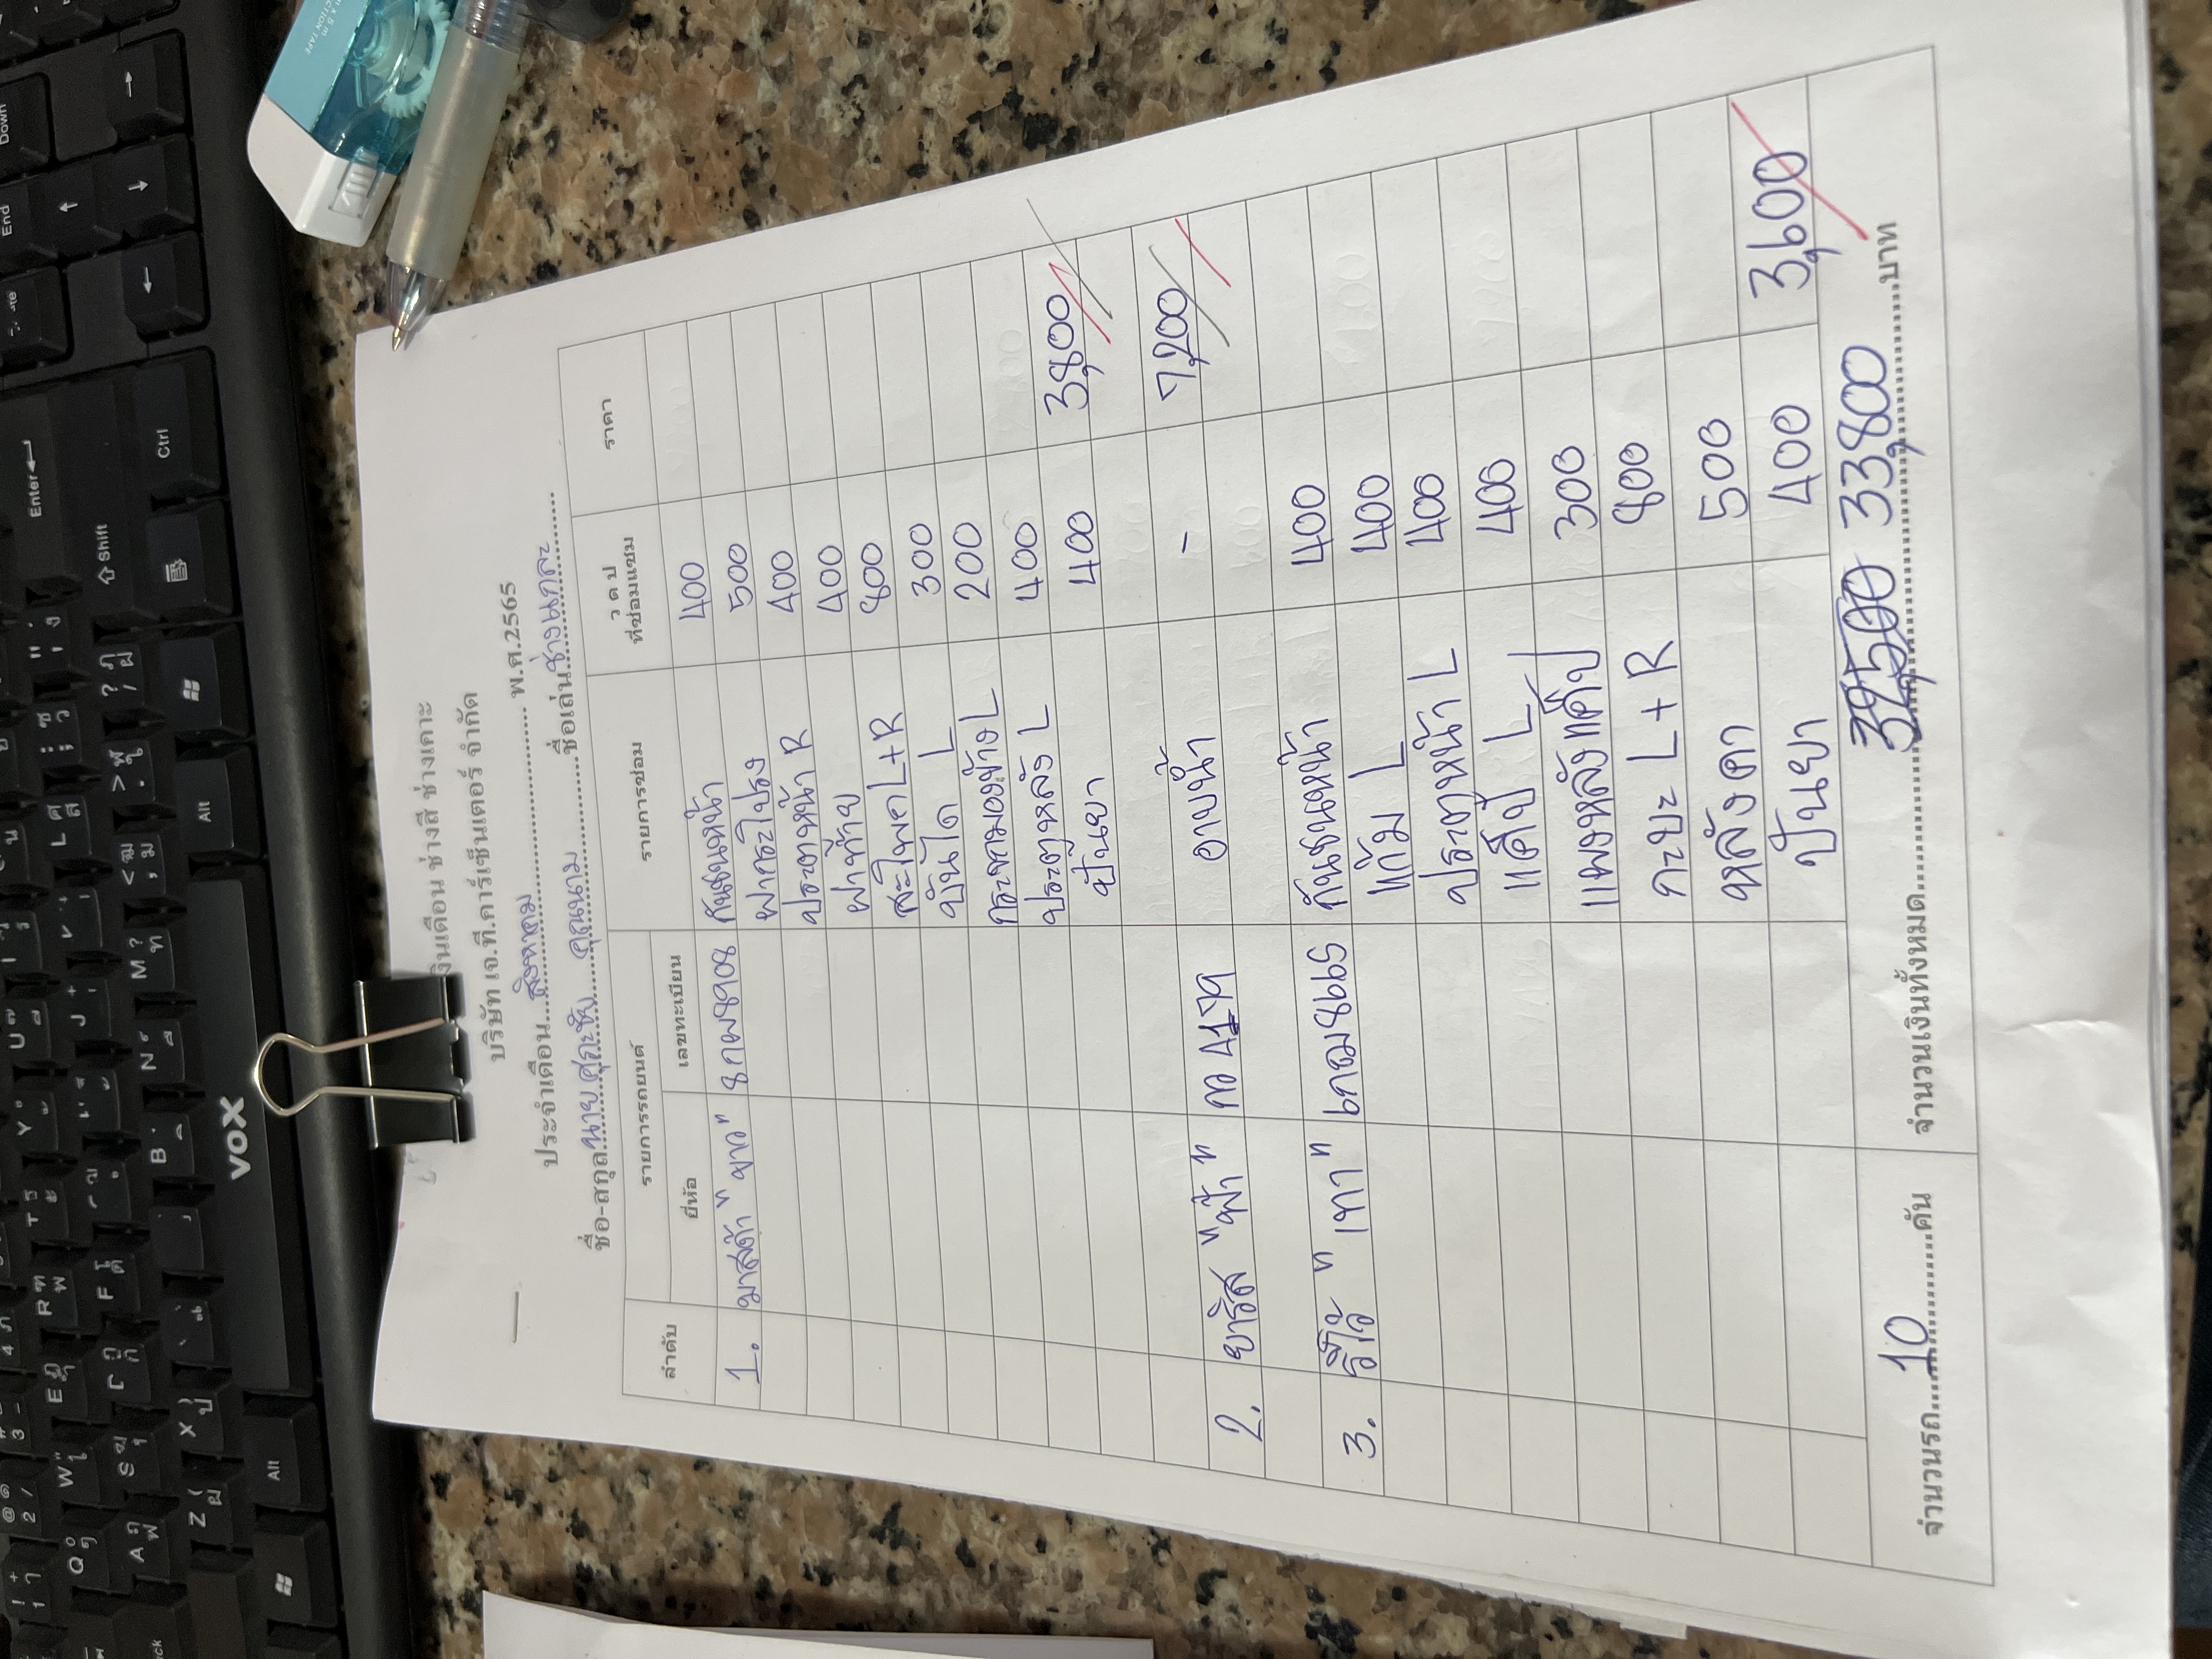 เงินเดือน ช่างสี ช่างเคาะ
บริษัท เจ.ที.คาร์เซ็นเตอร์ จำกัด
ประจำเดือน...สิงหาคม...พ.ศ.2565
ชื่อ-สกุล...นาย...คุณนาม...ชื่อเล่น...ช่างแกละ...
ลำดับ รายการรถยนต์ รายการซ่อม ว ด ป ที่ซ่อมแซม ราคา
ยี่ห้อ เลขทะเบียน
1. มาสด้า "ขาว" 8กพ8908 กันชนหน้า 400
ฝากระโปรง 500
ประตูหน้า R 400
ฝาท้าย 400
สะโพก L+R 800
บันได L 300
กระจกมองข้าง L 200
ประตูหลัง L 400
ปั่นยา 400 3,800
2. ยาริส "ฟ้า" อาบน้ำ - 7,200
3. รีโว้ "เทา" กันชนหน้า 400
แก้ม L 400
ประตูหน้า L 400
แค็ป L 400
แผงหลังแค็ป 300
กะบะ L+R 800
หลังคา 500
ปั่นยา 400 3,600
จำนวนรถ...10...คัน จำนวนเงินทั้งหมด...33,800...บาท
VOX
Enter
Shift
Ctrl
Alt
End
Down